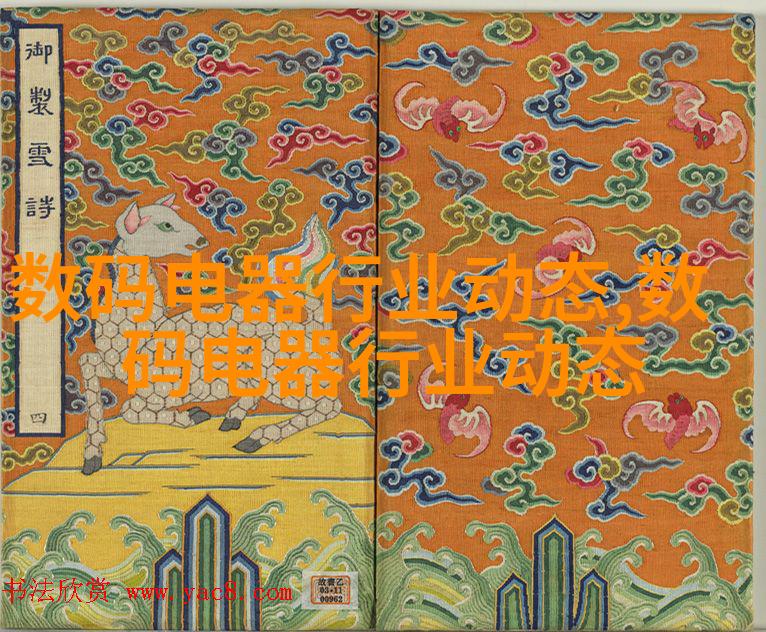 御製雪詩
四
数码电器行业动态,数
码电器行业动态
书法欣赏 www.yac8.com
故書乙
03•11
00962